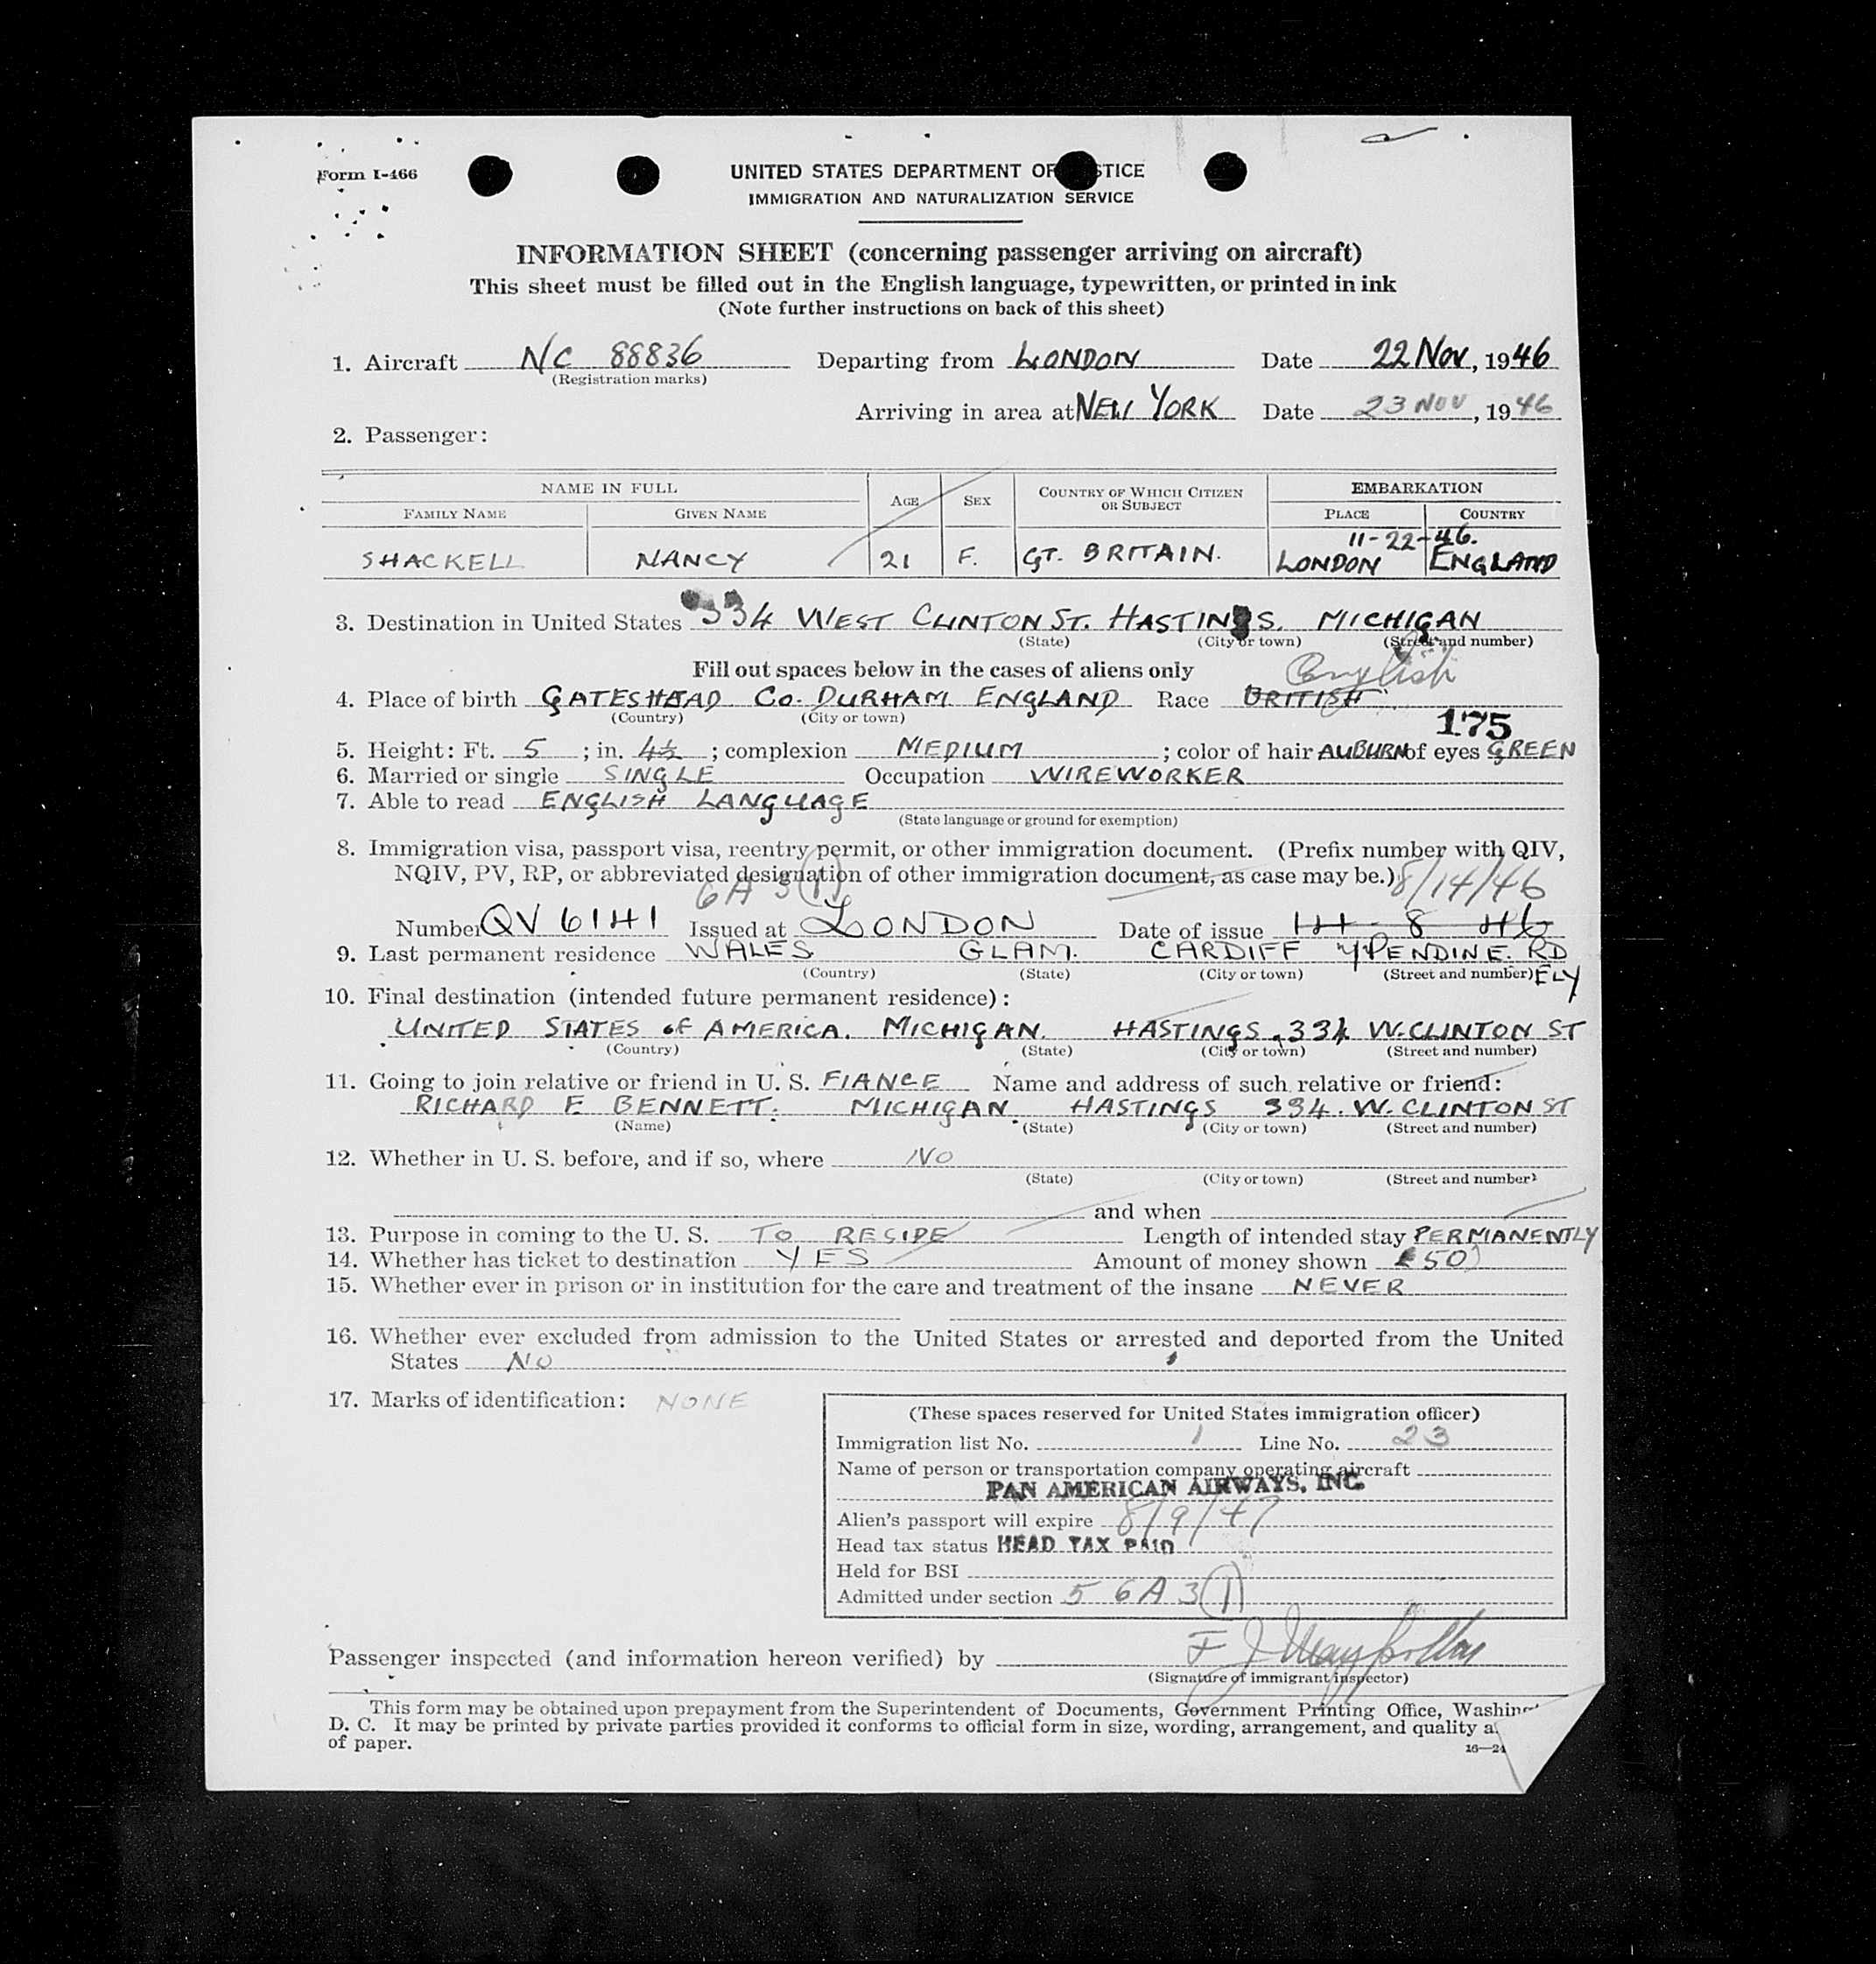 Form I-466
UNITED STATES DEPARTMENT OF STICE
IMMIGRATION AND NATURALIZATION SERVICE
INFORMATION SHEET (concerning passenger arriving on aircraft)
This sheet must be filled out in the English language, typewritten, or printed in ink
(Note further instructions on back of this sheet)
1. Aircraft N/C 88836 Departing from LONDON Date 22 Nov, 1946
(Registration marks)
Arriving in area at NEW YORK Date 23 NOV, 1946
2. Passenger:
NAME IN FULL AGE SEX COUNTRY OF WHICH CITIZEN OR SUBJECT EMBARKATION
FAMILY NAME GIVEN NAME PLACE COUNTRY
11-22-46.
SHACKELL NANCY 21 F. GT. BRITAIN. LONDON ENGLAND
3. Destination in United States 334 WEST CLINTON ST. HASTINGS. MICHIGAN
(State) (City or town) (Street and number)
Fill out spaces below in the cases of aliens only
English
4. Place of birth GATESHEAD CO. DURHAM ENGLAND Race BRITISH
(Country) (City or town)
175
5. Height: Ft. 5; in. 4½; complexion MEDIUM; color of hair AUBURN of eyes GREEN
6. Married or single SINGLE Occupation WIREWORKER
7. Able to read ENGLISH LANGUAGE
(State language or ground for exemption)
8. Immigration visa, passport visa, reentry permit, or other immigration document. (Prefix number with QIV,
NQIV, PV, RP, or abbreviated designation of other immigration document, as case may be.)
6A 3(1) 8/14/46
Number QV 6141 Issued at LONDON Date of issue 14 - 8 46
9. Last permanent residence WALES GLAM. CARDIFF PENDINE. RD
(Country) (State) (City or town) (Street and number) ELY
10. Final destination (intended future permanent residence):
UNITED STATES of AMERICA. MICHIGAN. HASTINGS. 334 W. CLINTON ST
(Country) (State) (City or town) (Street and number)
11. Going to join relative or friend in U. S. FIANCE Name and address of such relative or friend:
RICHARD E BENNETT. MICHIGAN. HASTINGS 334. W. CLINTON ST
(Name) (State) (City or town) (Street and number)
12. Whether in U. S. before, and if so, where NO
(State) (City or town) (Street and number)
and when
13. Purpose in coming to the U. S. TO RESIDE Length of intended stay PERMANENTLY
14. Whether has ticket to destination YES Amount of money shown £50
15. Whether ever in prison or in institution for the care and treatment of the insane NEVER
16. Whether ever excluded from admission to the United States or arrested and deported from the United
States NO
17. Marks of identification: NONE
(These spaces reserved for United States immigration officer)
Immigration list No. 1 Line No. 23
Name of person or transportation company operating aircraft
PAN AMERICAN AIRWAYS, INC.
Alien's passport will expire 8/9/47
Head tax status HEAD TAX PAID
Held for BSI
Admitted under section 5 6A 3(1)
Passenger inspected (and information hereon verified) by F J
(Signature of immigrant inspector)
This form may be obtained upon prepayment from the Superintendent of Documents, Government Printing Office, Washing
D. C. It may be printed by private parties provided it conforms to official form in size, wording, arrangement, and quality a
of paper.
16—24